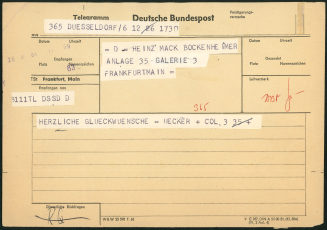 Telegramm Deutsche Bundespost
365 DUESSELDORF/6 12 26 1730
Datum Uhrzeit
Empfangen
Platz Namenszeichen
TSt Frankfurt, Main
Empfangen von
8111TL DSSD D
= D = HEINZ MACK BOCKENHEIMER
ANLAGE 35 GALERIE 3
FRANKFURTMAIN =
Datum Uhrzeit
Gesendet
Platz Namenszeichen
Leitvermerk
365
HERZLICHE GLUECKWUENSCHE = UECKER + COL 3 35 +
Dienstliche Rückfragen